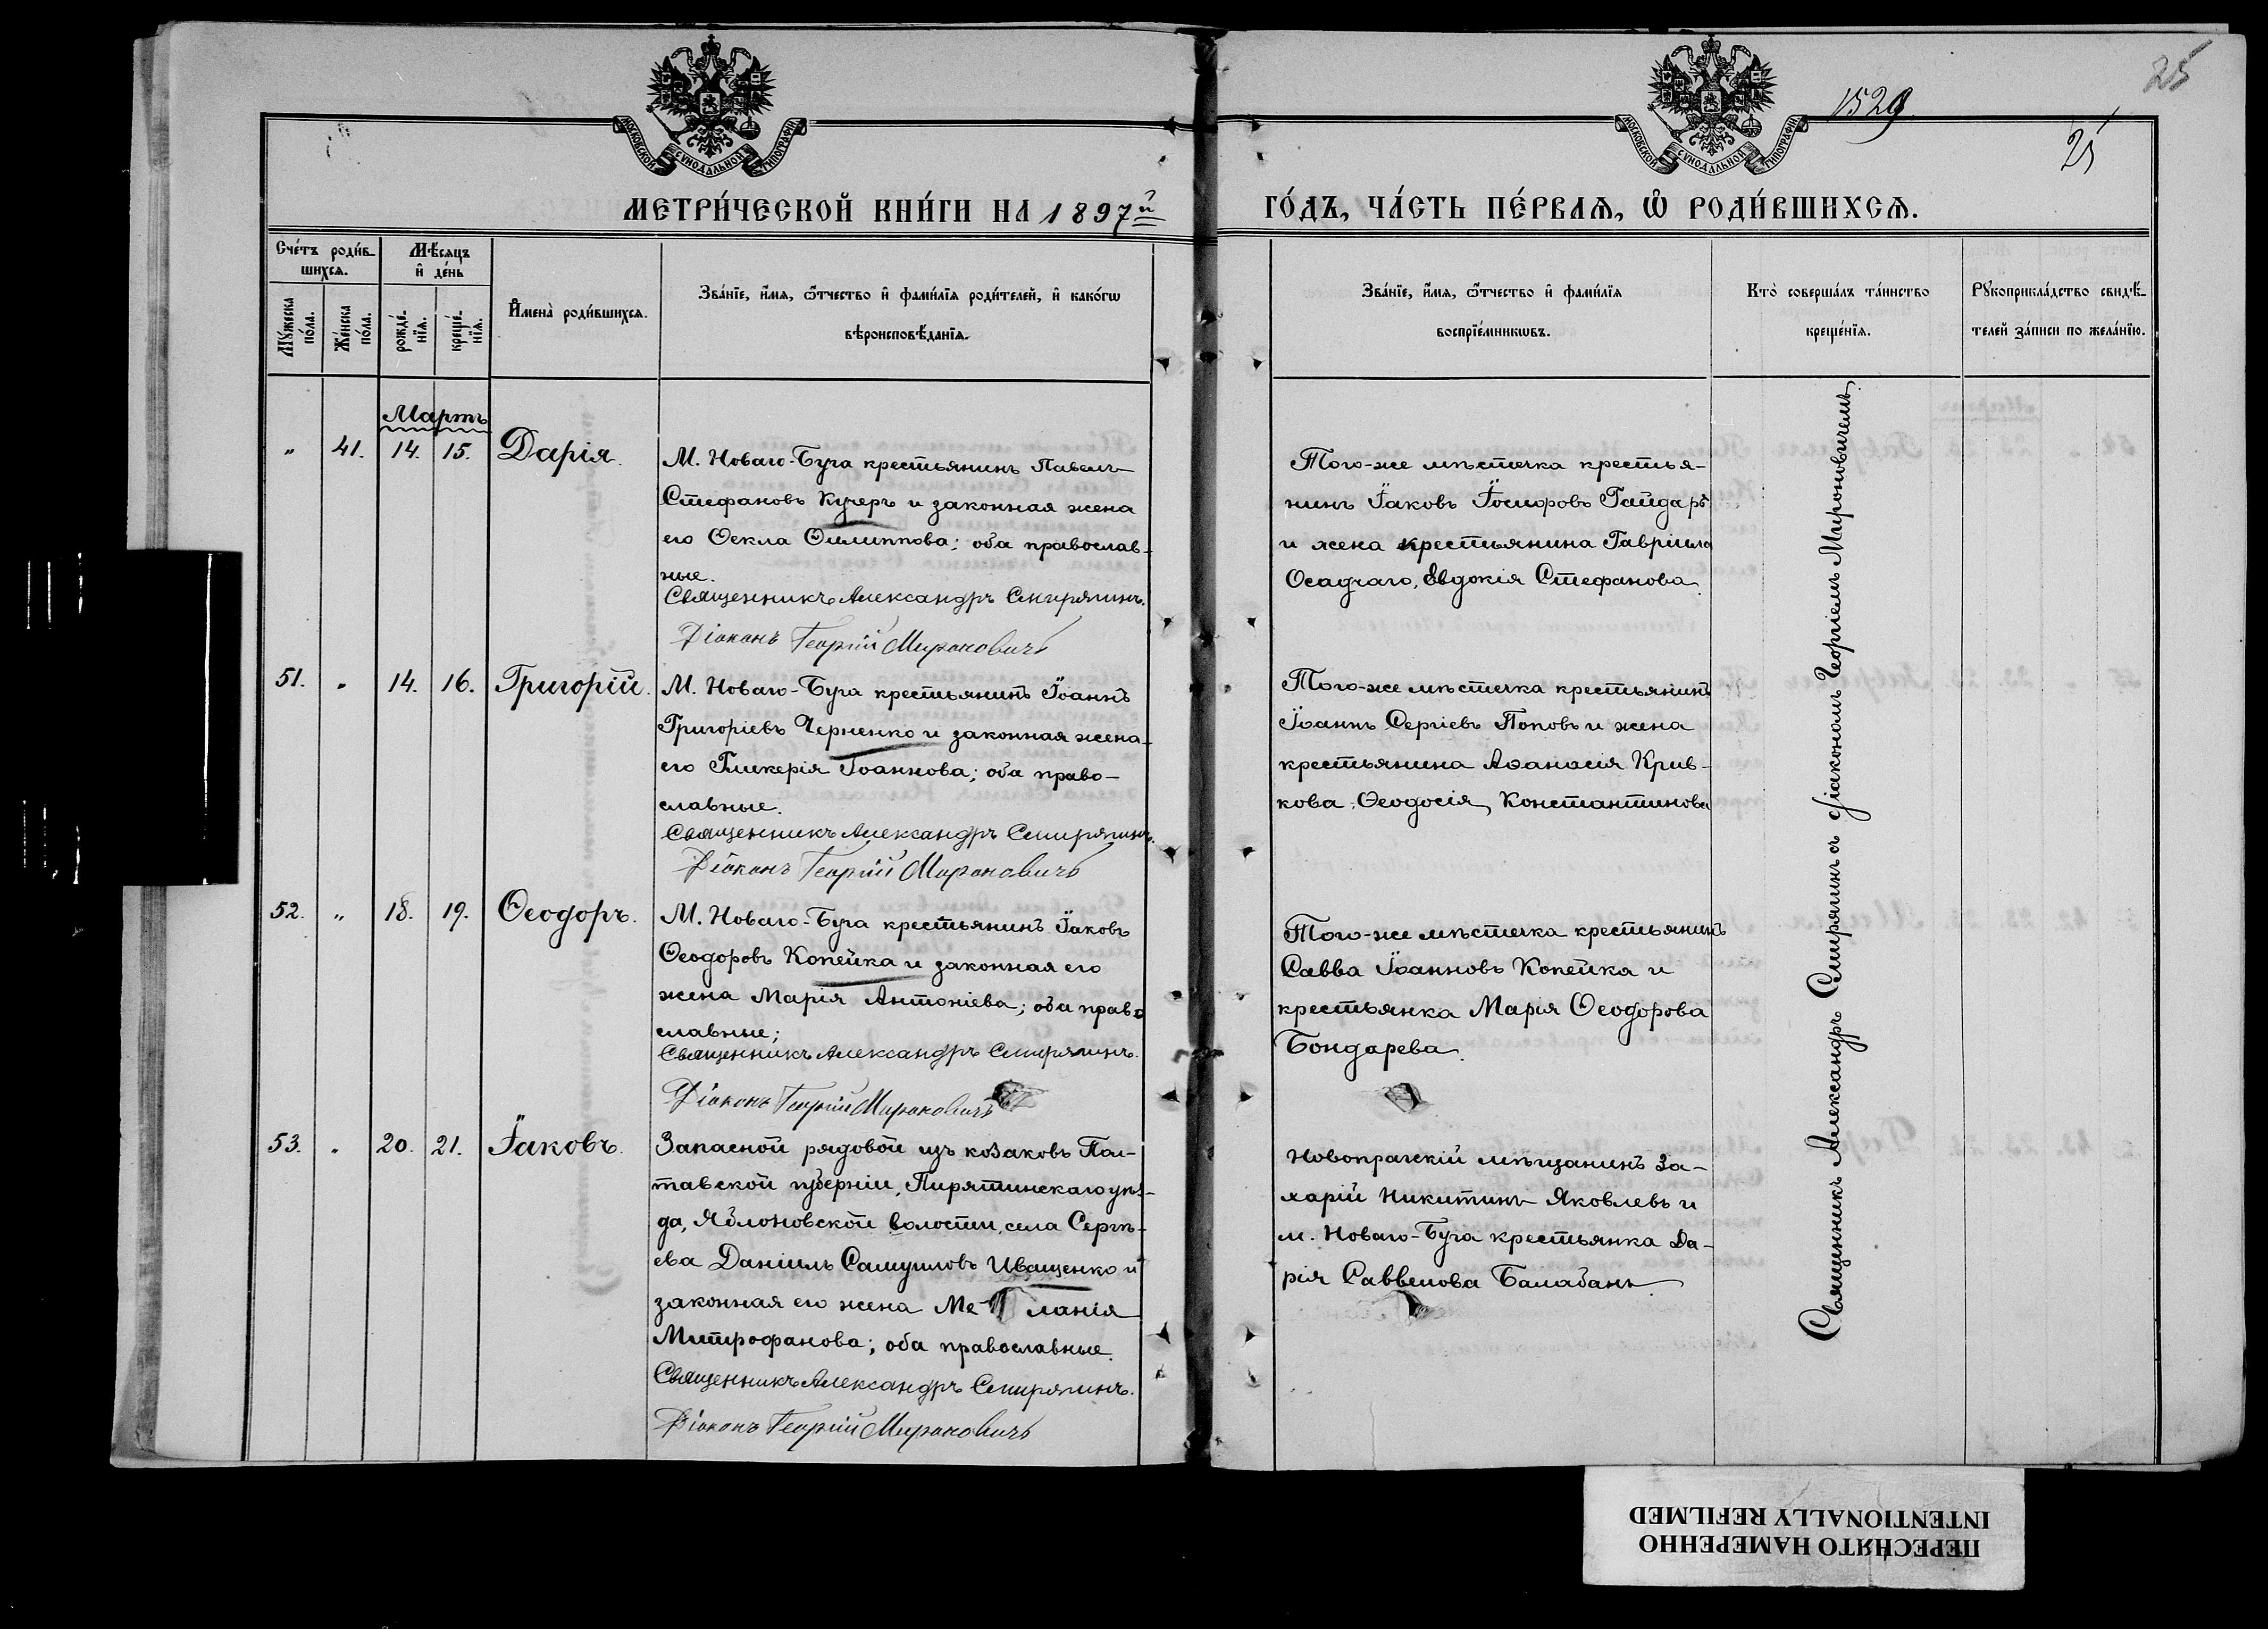 25
1529.
25
МОСКОВСКОЙ СѴНОДАЛЬНОЙ ТИПОГРАФІИ
МОСКОВСКОЙ СѴНОДАЛЬНОЙ ТИПОГРАФІИ
МЕТРИ́ЧЕСКОЙ КНИ́ГИ НА 1897й
ГО́ДЪ, ЧА́СТЬ ПЕ́РВАѦ, Ѡ҆ РОДИ́ВШИХСѦ.
Сче́тъ роди́в-
шихсѧ.
Мѣ́сѧцъ
и҆ де́нь
Мꙋ́жеска
по́ла.
Же́нска
по́ла.
рожде́-
нїѧ.
креще́-
нїѧ.
И҆мена̀ роди́вшихсѧ.
Зва́нїе, и҆́мѧ, ѻ҆́тчество и҆ фами́лїѧ роди́телей, и҆ како́гѡ
вѣроисповѣ́данїѧ.
Зва́нїе, и҆́мѧ, ѻ҆́тчество и҆ фами́лїѧ
воспрїе́мникѡвъ.
Кто̀ соверша́лъ та́инство
креще́нїѧ.
Рꙋкоприкла́дство свидѣ́-
телей за́писи по жела́нїю.
Мартъ
„ 41. 14. 15. Дарія.
М. Новаго-Буга крестьянинъ Павелъ
Стефановъ Кучеръ и законная жена
его Ѳекла Филиппова; оба православ-
ные.
Священникъ Александръ Смирягинъ.
Діаконъ Георгій Мироновичъ
Того-же мѣстечка крестья-
нинъ Іаковъ Іосифовъ Гайдаръ
и жена крестьянина Гавріила
Осадчаго, Евдокія Стефанова.
51. „ 14. 16. Григорій.
М. Новаго-Буга крестьянинъ Іоаннъ
Григоріевъ Черненко и законная жена
его Гликерія Іоаннова; оба право-
славные.
Священникъ Александръ Смирягинъ.
Діаконъ Георгій Мироновичъ
Того-же мѣстечка крестьянинъ
Іоаннъ Сергіевъ Поповъ и жена
крестьянина Аѳанасія Крив-
кова, Ѳеодосія Константинова
52. „ 18. 19. Ѳеодоръ.
М. Новаго-Буга крестьянинъ Іаковъ
Ѳеодоровъ Копейка и законная его
жена Марія Антоніева; оба право-
славные;
Священникъ Александръ Смирягинъ.
Діаконъ Георгій Мироновичъ
Того-же мѣстечка крестьянинъ
Савва Іоанновъ Копейка и
крестьянка Марія Ѳеодорова
Бондарева.
53. „ 20. 21. Іаковъ.
Запасной рядовой изъ козаковъ Пол-
тавской губерніи, Пирятинскаго уѣз-
да, Яблоновской волости, села Сергѣ-
ева Даніилъ Самуиловъ Иващенко и
законная его жена Ме- ланія
Митрофанова; оба православные.
Священникъ Александръ Смирягинъ.
Діаконъ Георгій Мироновичъ
Новопражскій мѣщанинъ За-
харій Никитинъ Яковлевъ и
м. Новаго-Буга крестьянка Да-
рія Саввелова Балабанъ.
Священникъ Александръ Смирягинъ съ діакономъ Георгіемъ Мироновичемъ.
ПЕРЕСНЯТО НАМЕРЕННО
INTENTIONALLY REFILMED